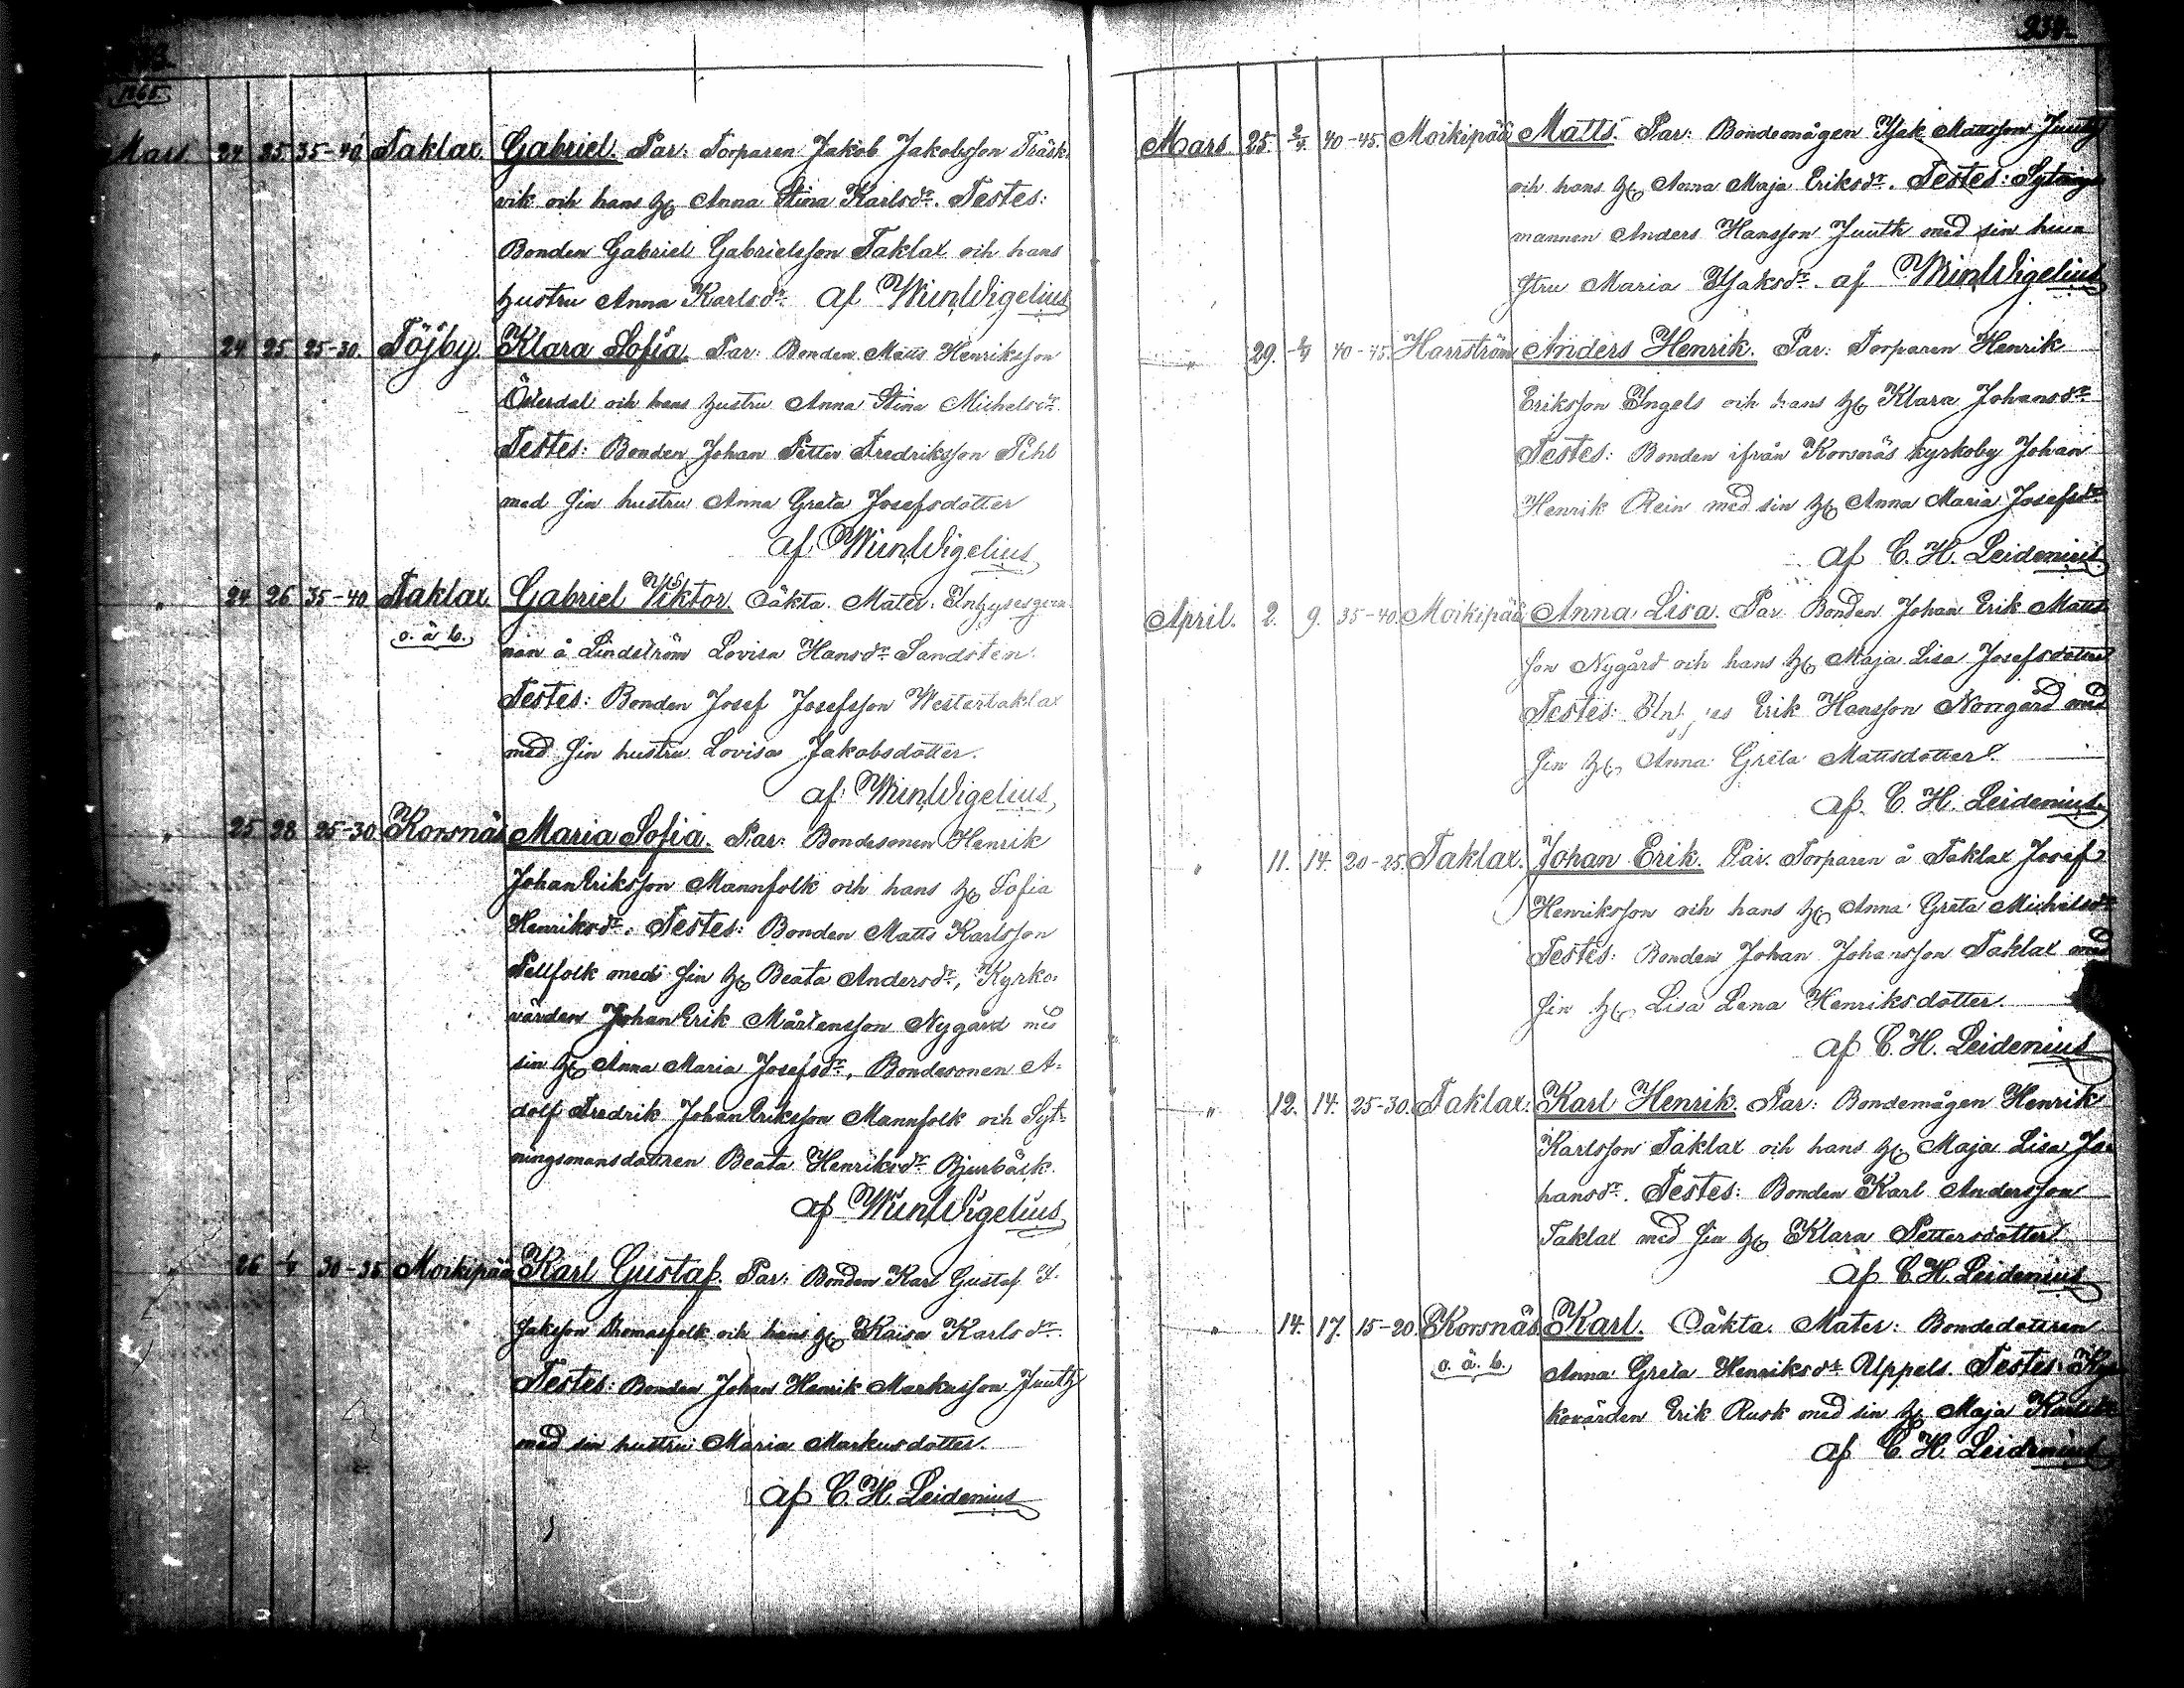 1865
Mars. 24 25 35-40 Taklax. Gabriel. Par: Torparen Jakob Jakobsson Träsk-
vik och hans H. Anna Stina Karlsdr. Testes:
Bonden Gabriel Gabrielsson Taklax och hans
hustru Anna Karlsdr. af Win Wigelius
" 24 25 25-30. Töjby. Klara Sofia. Par: Bonden Matts Henriksson
Österdal och hans hustru Anna Stina Michelsdr.
Testes: Bonden Johan Petter Fredriksson Pihl
med sin hustru Anna Greta Josefsdotter
af Win Wigelius
" 24 26 35-40 Taklax Gabriel Viktor. Oäkta. Mater: Inhyseqvin
o. ä. b. nan å Lindström Lovisa Hansdr Sandsten.
Testes: Bonden Josef Josefsson Westertaklax
med sin hustru Lovisa Jakobsdotter.
af Win Wigelius
" 25 28 25-30 Korsnäs Maria Sofia. Par: Bondesonen Henrik
Johan Eriksson Mannfolk och hans H. Sofia
Henriksdr. Testes: Bonden Matts Karlsson
Pellfolk med sin H. Beata Andersdr, Kyrko-
värden Johan Erik Mårtensson Nygård med
sin H. Anna Maria Josefsdr, Bondesonen A-
dolf Fredrik Johan Eriksson Mannfolk och Syt-
ningsmansdottren Beata Henriksdr Bjurbäck.
af Win Wigelius
" 26 1/4 30-35 Moikipää Karl Gustaf. Par: Bonden Karl Gustaf I-
saksson Thomasfolk och hans H. Kaisa Karlsdr.
Testes: Bonden Johan Henrik Markusson Juuth
med sin hustru Maria Markusdotter.
af C. H. Leidenius
234.
Mars. 25. 2/4. 40-45. Moikipää Matts. Par: Bondemågen Isak Mattsson Juuth
och hans H. Anna Maja Eriksdr. Testes: Sytnings
mannen Anders Hansson Juuth med sin hu
stru Maria Isaksdr. af Win Wigelius
" 29. 2/4 40-45. Harrström Anders Henrik. Par: Torparen Henrik
Eriksson Engels och hans H. Klara Johansdr.
Testes: Bonden ifrån Korsnäs kyrkoby Johan
Henrik Rein med sin H. Anna Maria Josefsdr
af C. H. Leidenius
April. 2. 9. 35-40. Moikipää Anna Lisa. Par: Bonden Johan Erik Matts
son Nygård och hans H. Maja Lisa Josefsdotter
Testes: Erik Hansson Norrgård med
sin H. Anna Greta Mattsdotter.
af C. H. Leidenius
" 11. 14. 20-25. Taklax. Johan Erik. Par. Torparen å Taklax Josef
Henriksson och hans H. Anna Greta Michelsdr
Testes: Bonden Johan Johansson Taklax med
sin H. Lisa Lena Henriksdotter.
af C. H. Leidenius
" 12. 14. 25-30. Taklax. Karl Henrik. Par: Bondemågen Henrik
Karlsson Taklax och hans H. Maja Lisa Jo
hansdr. Testes: Bonden Karl Andersson
Taklax med sin H. Klara Pettersdotter
af C. H. Leidenius
" 14. 17. 15-20. Korsnäs Karl. Oäkta. Mater: Bondedottren
o. ä. b. Anna Greta Henriksdr Uppels. Testes: Kyr
kovärden Erik Rusk med sin H. Maja
af C. H. Leidenius